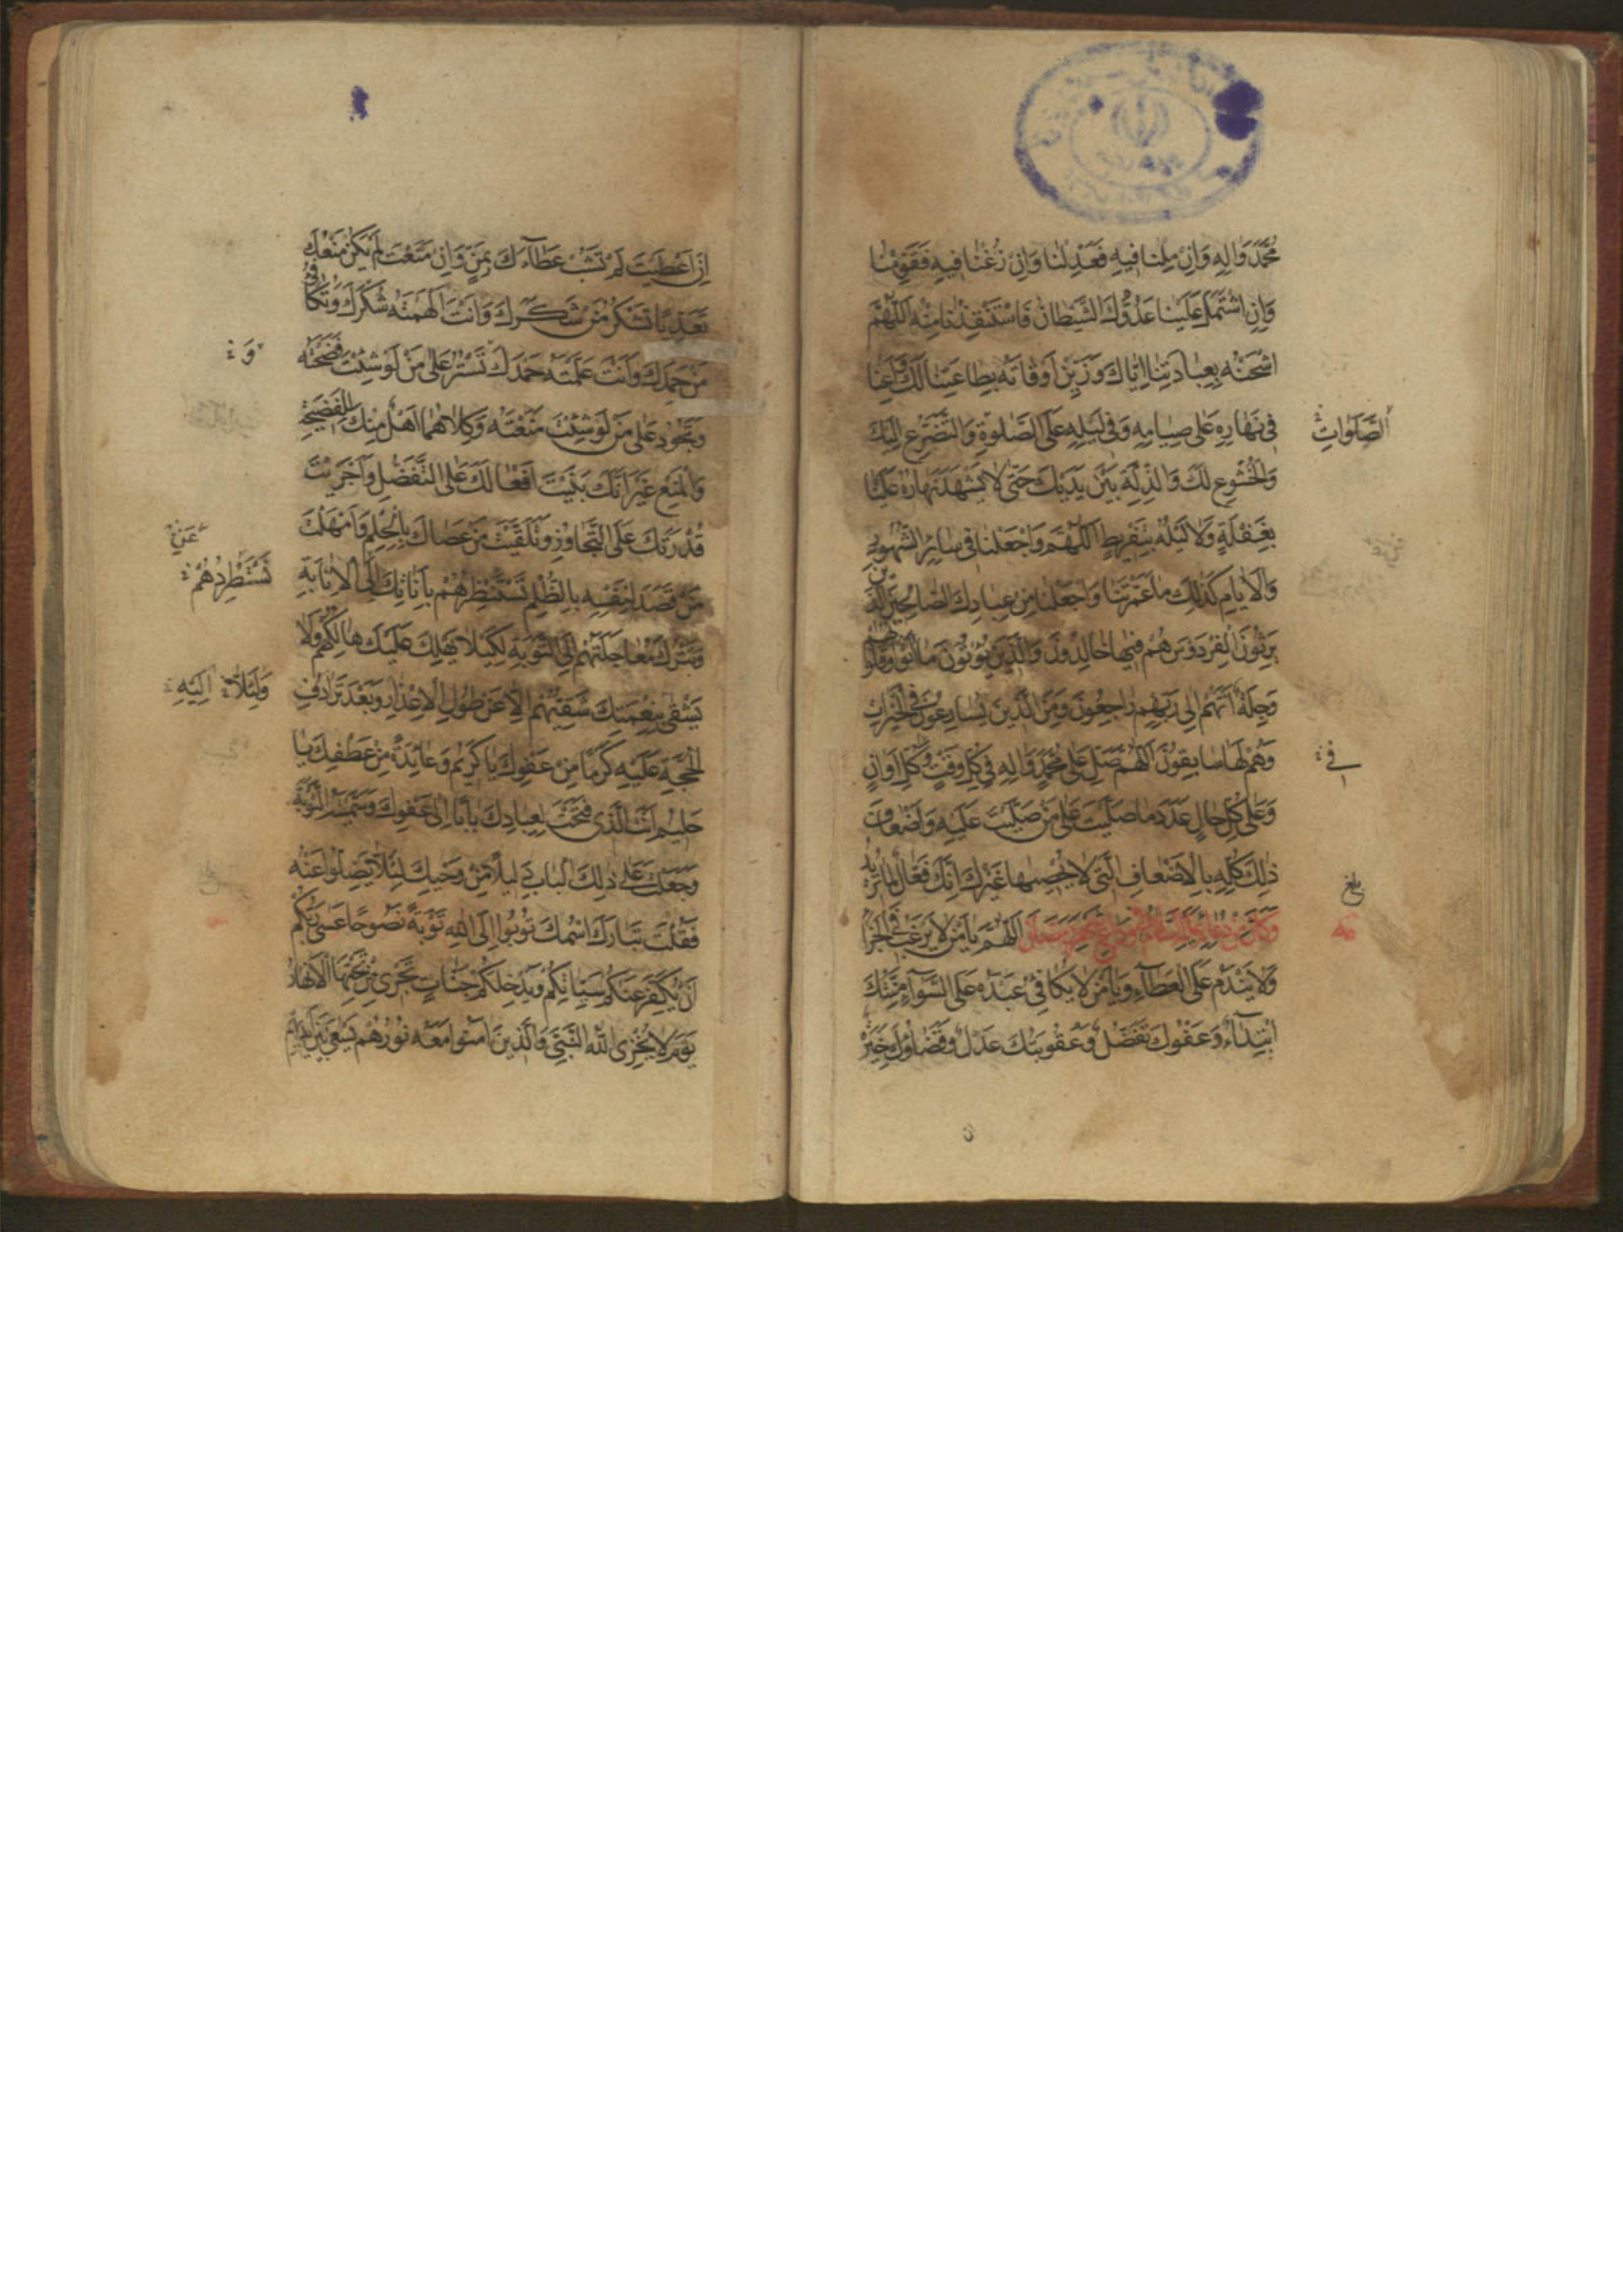 مُحَمَّدٍ وَاٰلِهِ وَاِنْ مِلْنا فيهِ فَعَدِّلْنا وَاِنْ زُغْنا فيهِ فَقَوِّمْنا
وَاِنِ اشْتَمَلَ عَلَيْنا عَدُوُّكَ الشَّيْطانُ فَاسْتَنْقِذْنا مِنْهُ اَللّٰهُمَّ
اشْحَنْهُ بِعِبادَتِنا اِيّاكَ وَزَيِّنْ اَوْقاتَهُ بِطاعَتِنا لَكَ وَاَعِنّا
فى نَهارِهِ عَلى صِيامِهِ وَفى لَيْلِهِ عَلَى الصَّلوةِ وَالتَّضَرُّعِ اِلَيْكَ
الصَّلَواتِ
وَالْخُشُوعِ لَكَ وَالذِّلَّةِ بَيْنَ يَدَيْكَ حَتّى لا يَشْهَدَ نَهارُهُ عَلَيْنا
بِغَفْلَةٍ وَلا لَيْلُهُ بِتَفْريطٍ اَللّٰهُمَّ وَاجْعَلْنا فى سائِرِ الشُّهُورِ
وَالْاَيّامِ كَذٰلِكَ ما عَمَّرْتَنا وَاجْعَلْنا مِنْ عِبادِكَ الصّالِحينَ الَّذينَ
يَرِثُونَ الْفِرْدَوْسَ هُمْ فيها خالِدُونَ وَالَّذينَ يُؤْتُونَ ما اٰتَوْا وَقُلُوبُهُمْ
وَجِلَةٌ اَنَّهُمْ اِلى رَبِّهِمْ راجِعُونَ وَمِنَ الَّذينَ يُسارِعُونَ فِى الْخَيْراتِ
وَهُمْ لَها سابِقُونَ اَللّٰهُمَّ صَلِّ عَلى مُحَمَّدٍ وَاٰلِهِ فى كُلِّ وَقْتٍ وَكُلِّ اَوانٍ
فى
وَعَلى كُلِّ حالٍ عَدَدَ ما صَلَّيْتَ عَلى مَنْ صَلَّيْتَ عَلَيْهِ وَاَضْعافَ
ذٰلِكَ كُلِّهِ بِالْاَضْعافِ الَّتى لا يُحْصيها غَيْرُكَ اِنَّكَ فَعّالٌ لِما تُريدُ
بلغ
وَكانَ مِنْ دُعائِهِ عَلَيْهِ السَّلامُ اَللّٰهُمَّ يا مَنْ لا يَرْغَبُ فِى الْجَزاءِ
وَلا يَنْدَمُ عَلَى الْعَطاءِ وَيا مَنْ لا يُكافِئُ عَبْدَهُ عَلَى السَّواءِ مِنَّتُكَ
ابْتِداءٌ وَعَفْوُكَ تَفَضُّلٌ وَعُقُوبَتُكَ عَدْلٌ وَقَضاؤُكَ خِيَرَةٌ
اِنْ اَعْطَيْتَ لَمْ تَشُبْ عَطاءَكَ بِمَنٍّ وَاِنْ مَنَعْتَ لَمْ يَكُنْ مَنْعُكَ
تَعَدِّيًا تَشْكُرُ مَنْ شَكَرَكَ وَاَنْتَ اَلْهَمْتَهُ شُكْرَكَ وَتُكافِئُ
مَنْ حَمِدَكَ وَاَنْتَ عَلَّمْتَهُ حَمْدَكَ تَسْتُرُ عَلى مَنْ لَوْ شِئْتَ فَضَحْتَهُ
وَ
وَتَجُودُ عَلى مَنْ لَوْ شِئْتَ مَنَعْتَهُ وَكِلاهُما اَهْلٌ مِنْكَ لِلْفَضيحَةِ
وَالْمَنْعِ غَيْرَ اَنَّكَ بَنَيْتَ اَفْعالَكَ عَلَى التَّفَضُّلِ وَاَجْرَيْتَ
قُدْرَتَكَ عَلَى التَّجاوُزِ وَتَلَقَّيْتَ مَنْ عَصاكَ بِالْحِلْمِ وَاَمْهَلْتَ
مَنْ قَصَدَ لِنَفْسِهِ بِالظُّلْمِ تَسْتَنْظِرُهُمْ بِاَناتِكَ اِلَى الْاِنابَةِ
تَسْتَطْرِدُهُمْ
وَتَتْرُكُ مُعاجَلَتَهُمْ اِلَى التَّوْبَةِ لِكَيْلا يَهْلِكَ عَلَيْكَ هالِكُهُمْ وَلا
يَشْقى بِنِعْمَتِكَ شَقِيُّهُمْ اِلّا عَنْ طُولِ الْاِعْذارِ وَبَعْدَ تَرادُفِ
وَلِئَلّا اِلَيْهِ
الْحُجَّةِ عَلَيْهِ كَرَمًا مِنْ عَفْوِكَ يا كَريمُ وَعائِدَةً مِنْ عَطْفِكَ يا
حَليمُ اَنْتَ الَّذى فَتَحْتَ لِعِبادِكَ بابًا اِلى عَفْوِكَ وَسَمَّيْتَهُ التَّوْبَةَ
وَجَعَلْتَ عَلى ذٰلِكَ الْبابِ دَليلًا مِنْ وَحْيِكَ لِئَلّا يَضِلُّوا عَنْهُ
فَقُلْتَ تَبارَكَ اسْمُكَ تُوبُوا اِلَى اللهِ تَوْبَةً نَصُوحًا عَسى رَبُّكُمْ
اَنْ يُكَفِّرَ عَنْكُمْ سَيِّئاتِكُمْ وَيُدْخِلَكُمْ جَنّاتٍ تَجْرى مِنْ تَحْتِهَا الْاَنْهارُ
يَوْمَ لا يُخْزِى اللهُ النَّبِىَّ وَالَّذينَ اٰمَنُوا مَعَهُ نُورُهُمْ يَسْعى بَيْنَ اَيْديهِمْ